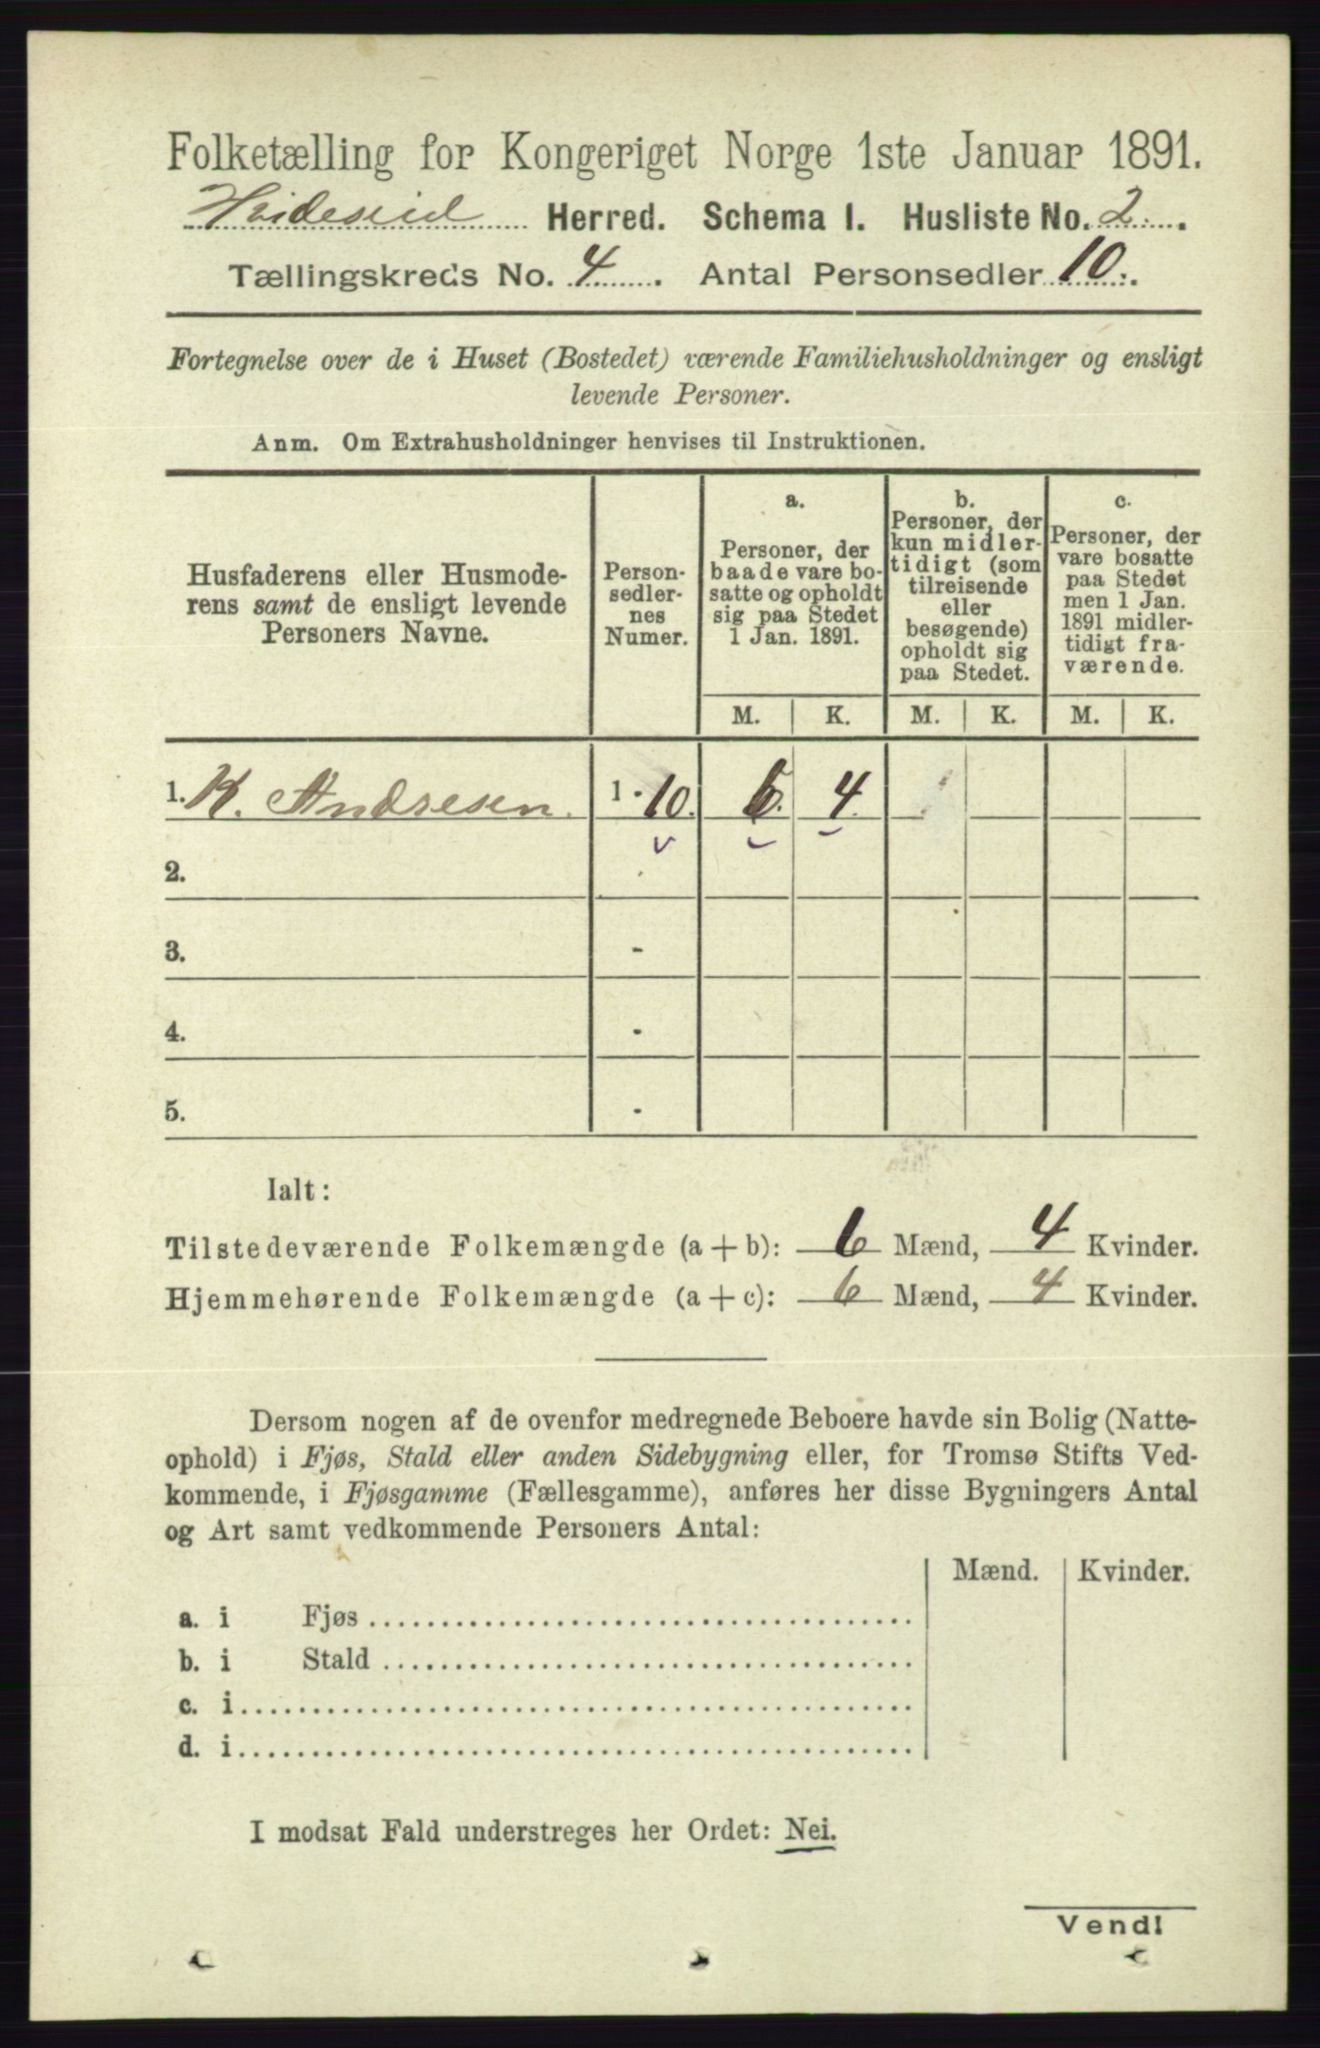 Folketælling for Kongeriget Norge 1ste Januar 1891.
Hvideseid Herred. Schema I. Husliste No. 2.
Tællingskreds No. 4. Antal Personsedler 10.
Fortegnelse over de i Huset (Bostedet) værende Familiehusholdninger og ensligt
levende Personer.
Anm. Om Extrahusholdninger henvises til Instruktionen.
Husfaderens eller Husmode-
rens samt de ensligt levende
Personers Navne.
Person-
sedler-
nes
Numer.
a.
Personer, der
baade vare bo-
satte og opholdt
sig paa Stedet
1 Jan. 1891.
b.
Personer, der
kun midler-
tidigt (som
tilreisende
eller
besøgende)
opholdt sig
paa Stedet.
c.
Personer, der
vare bosatte
paa Stedet
men 1 Jan.
1891 midler-
tidigt fra-
værende.
M. K. M. K. M. K.
1. K. Andresen. 1 - 10. 6. 4.
2.
3. -
4. -
5. -
Ialt:
Tilstedeværende Folkemængde (a + b): 6 Mænd, 4 Kvinder.
Hjemmehørende Folkemængde (a + c): 6 Mænd, 4 Kvinder.
Dersom nogen af de ovenfor medregnede Beboere havde sin Bolig (Natte-
ophold) i Fjøs, Stald eller anden Sidebygning eller, for Tromsø Stifts Ved-
kommende, i Fjøsgamme (Fællesgamme), anføres her disse Bygningers Antal
og Art samt vedkommende Personers Antal:
Mænd. Kvinder.
a. i Fjøs
b. i Stald
c. i
d. i
I modsat Fald understreges her Ordet: Nei.
Vend!